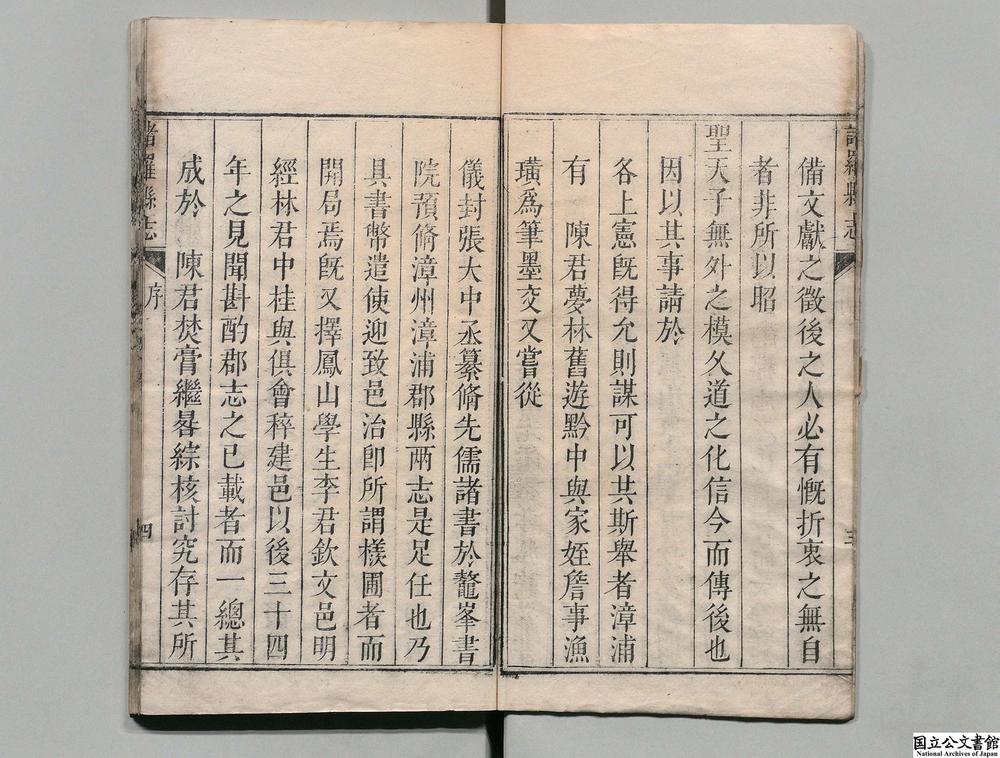 諸羅縣志
三
備文獻之徵後之人必有慨折衷之無自
者非所以昭
聖天子無外之模久道之化信今而傳後也
因以其事請於
各上憲既得允則謀可以共斯舉者漳浦
有　陳君夢林舊遊黔中與家姪詹事漁
璜爲筆墨交又嘗從
儀封張大中丞纂脩先儒諸書於鼇峯書
院預脩漳州漳浦郡縣兩志是足任也乃
具書幣遣使迎致邑治卽所謂檨圃者而
開局焉旣又擇鳳山學生李君欽文邑明
經林君中桂與俱會稡建邑以後三十四
年之見聞斟酌郡志之已載者而一總其
成於　陳君焚膏繼晷綜核討究存其所
諸羅縣志
序
四
国立公文書館
National Archives of Japan